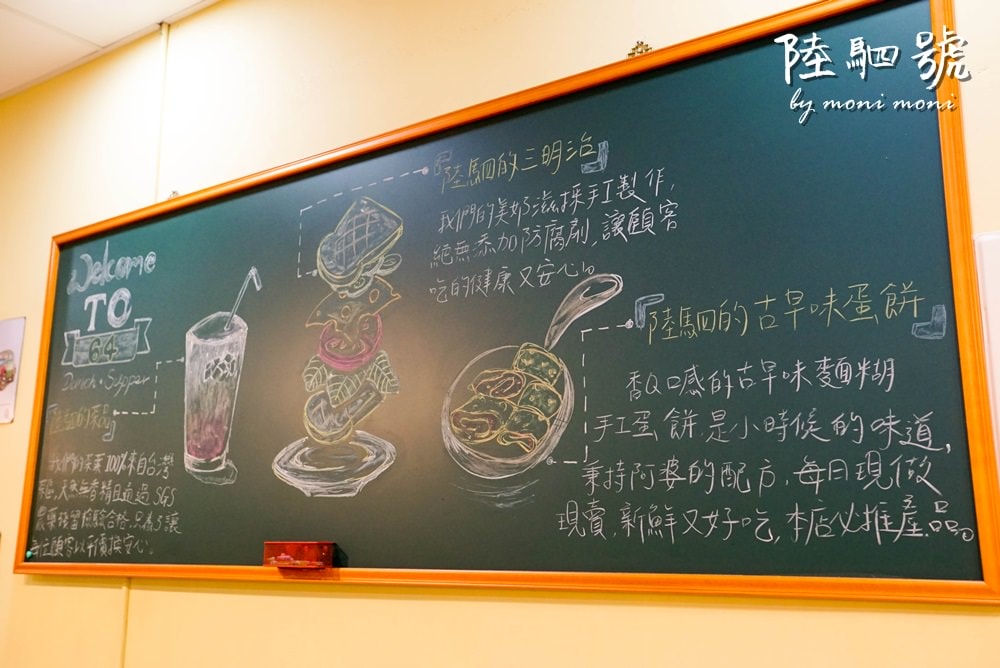 陸駟號
by moni moni
Welcome
TO
64
Brunch · Supper
陸駟的茶品
我們的茶葉100%來自台灣
茶區,天然無香精且通過SGS
農藥殘留檢驗合格,只為了讓
每位顧客以平價換安心。
陸駟的三明治
我們的美奶滋採手工製作,
絕無添加防腐劑,讓顧客
吃的健康又安心。
陸駟的古早味蛋餅
香Q口感的古早味麵糊
手工蛋餅,是小時候的味道,
秉持阿婆的配方,每日現做
現賣,新鮮又好吃,本店必推產品。